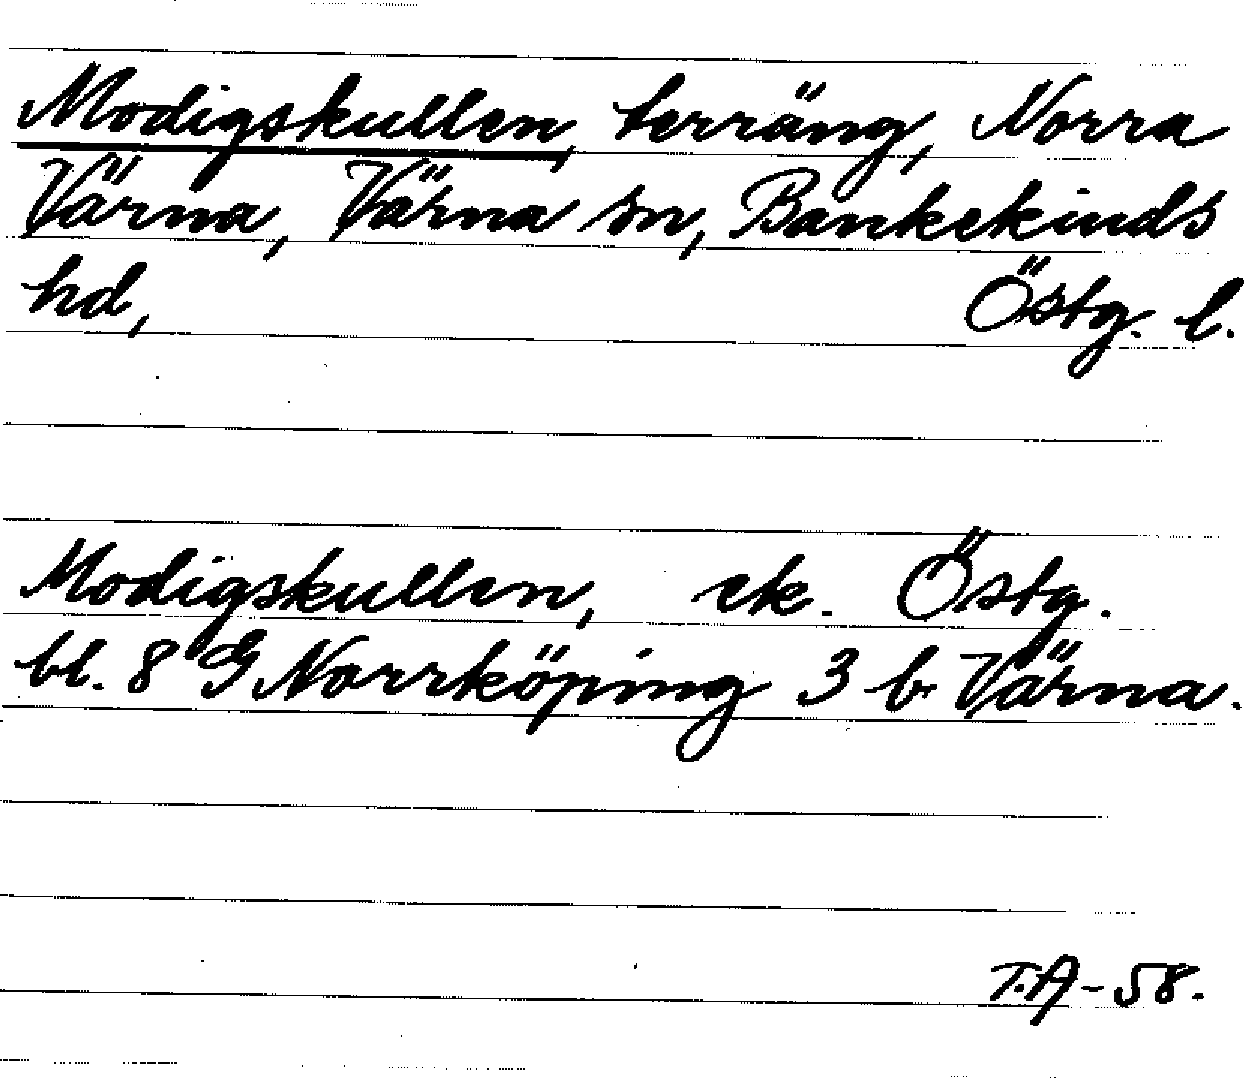 Modigskullen, terräng, Norra
Värna, Värna sn, Bankekinds
hd, Östg. l.
Modigskullen, ek. Östg.
bl. 8 G Norrköping 3 b. Värna.
T.A-58.